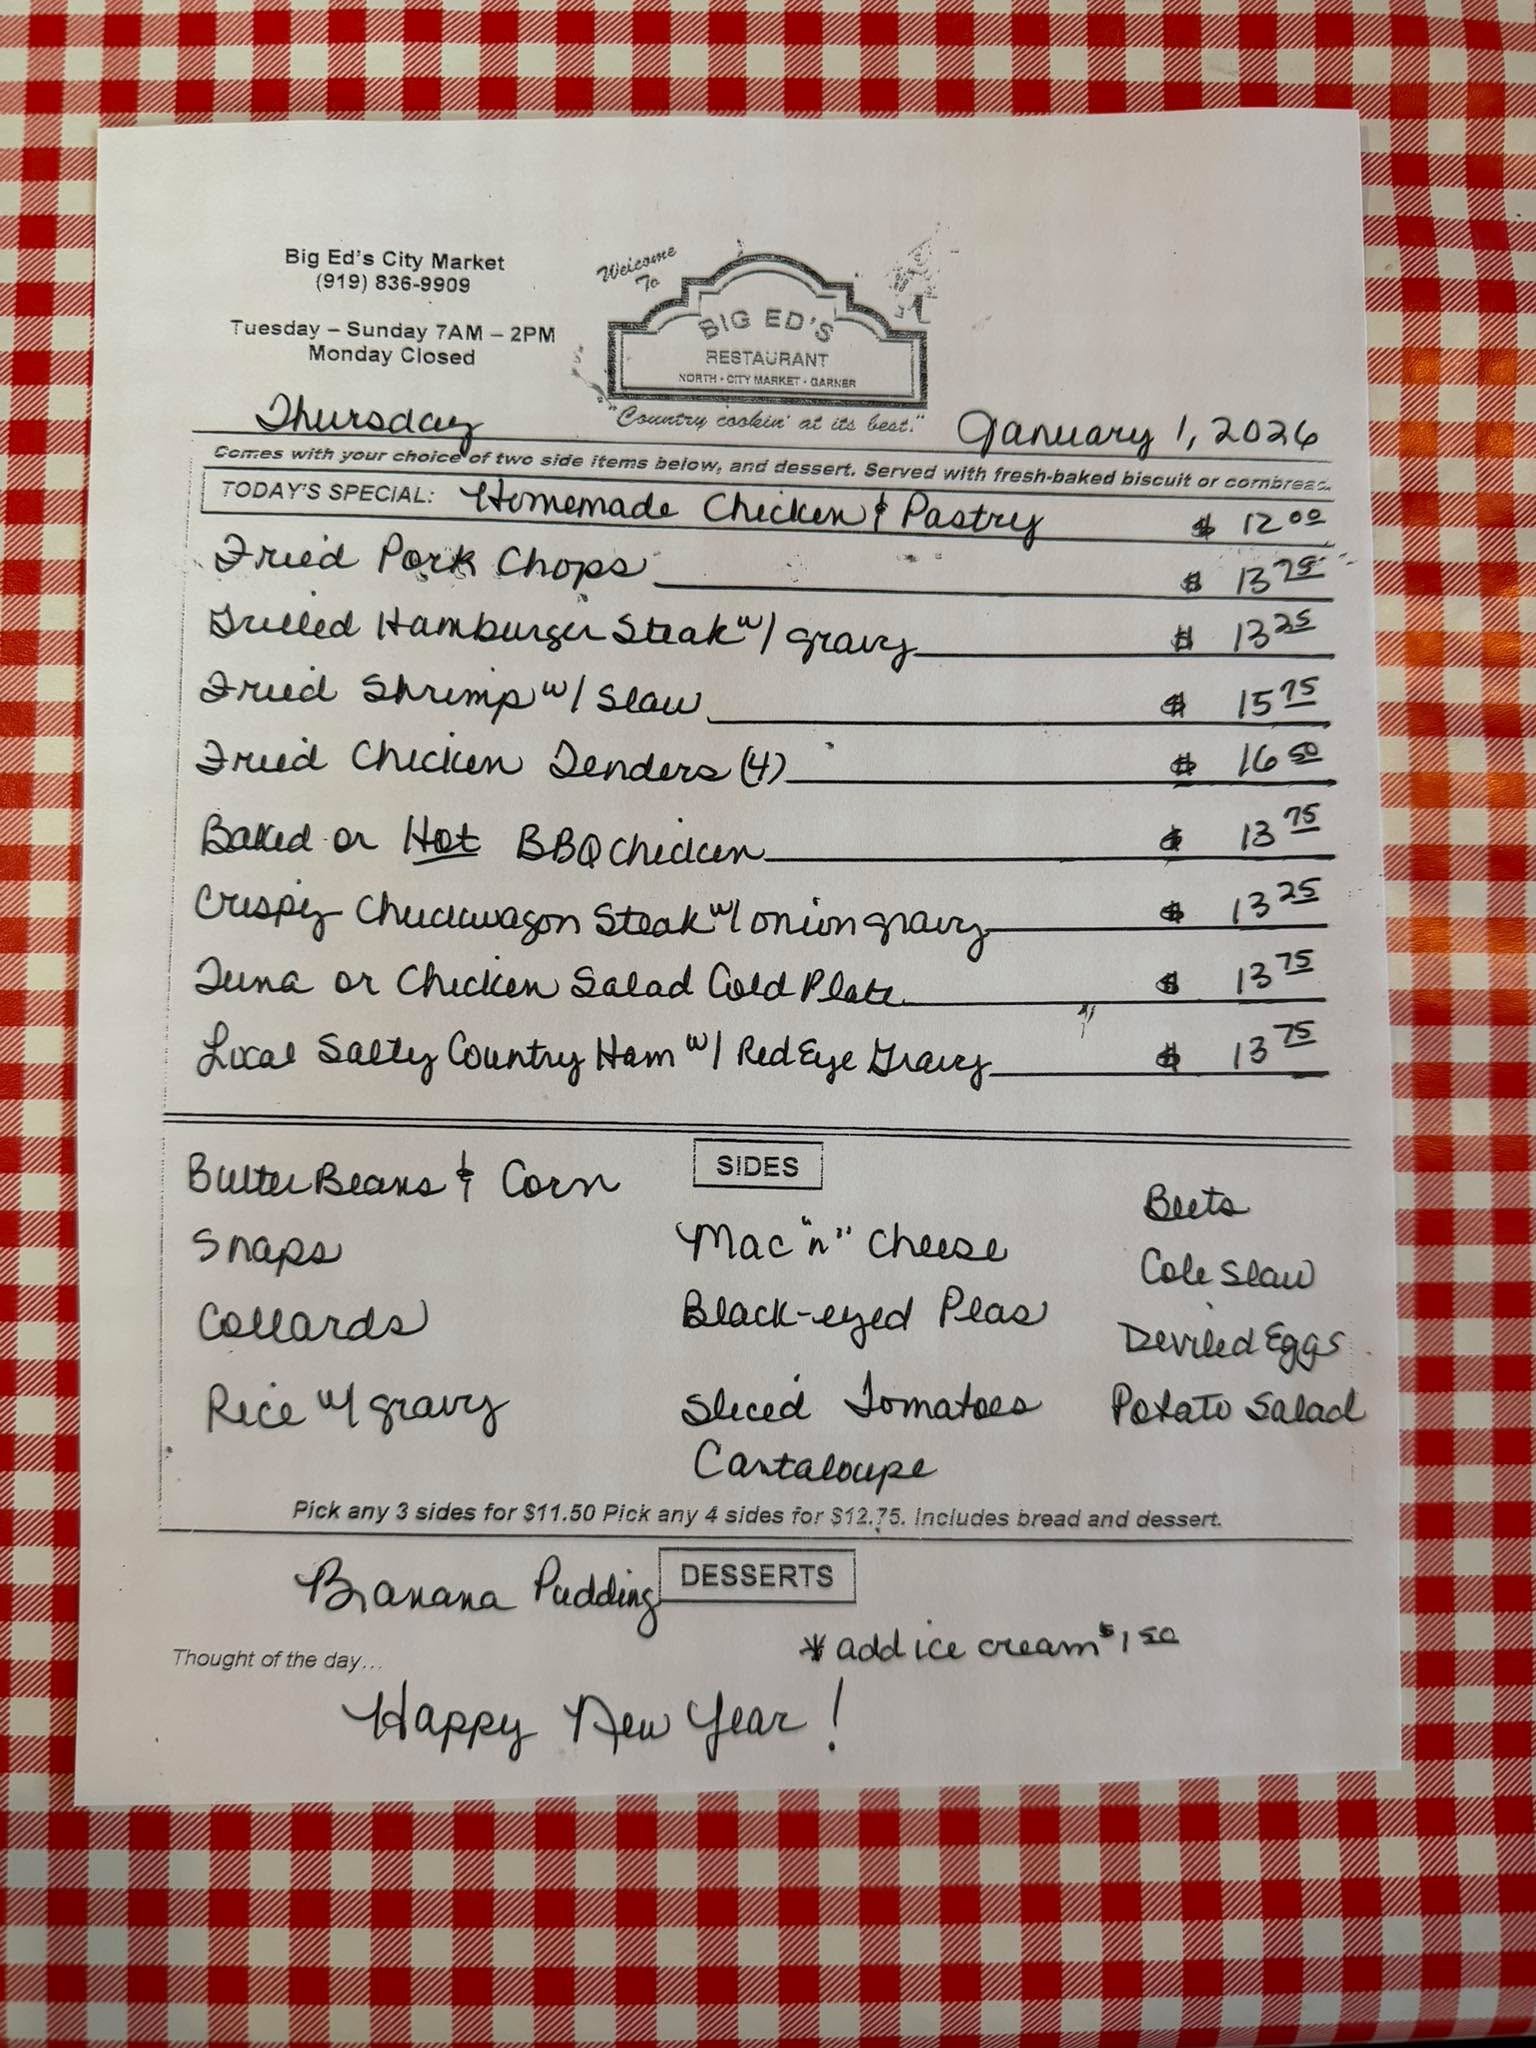 Big Ed's City Market
(919) 836-9909
Tuesday – Sunday 7AM – 2PM
Monday Closed
Welcome
To
BIG ED'S
RESTAURANT
NORTH • CITY MARKET • GARNER
"Country cookin' at its best."
Thursday January 1, 2026
Comes with your choice of two side items below, and dessert. Served with fresh-baked biscuit or cornbread.
TODAY'S SPECIAL: Homemade Chicken & Pastry $ 12.00
Fried Pork Chops $ 13 75
Grilled Hamburger Steak w/ gravy $ 13 25
Fried Shrimp w/ Slaw $ 15 75
Fried Chicken Tenders (4) $ 16 50
Baked or Hot BBQ Chicken $ 13 75
Crispy Chuckwagon Steak w/ onion gravy $ 13 25
Tuna or Chicken Salad Cold Plate $ 13 75
Local Salty Country Ham w/ Red Eye Gravy $ 13 75
SIDES
Butter Beans & Corn
Snaps
Collards
Rice w/ gravy
Mac "n" Cheese
Black-eyed Peas
Sliced Tomatoes
Cantaloupe
Beets
Cole Slaw
Deviled Eggs
Potato Salad
Pick any 3 sides for $11.50 Pick any 4 sides for $12.75. Includes bread and dessert.
DESSERTS
Banana Pudding
* add ice cream $1 50
Thought of the day...
Happy New Year!